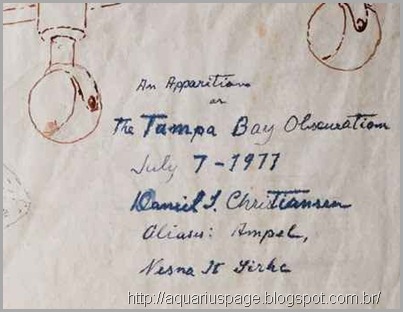 An Apparition
or
The Tampa Bay Obscuration
July 7-1977
Daniel S. Christiansen
Aliases: Ampel,
http://aquariuspage.blogspot.com.br/